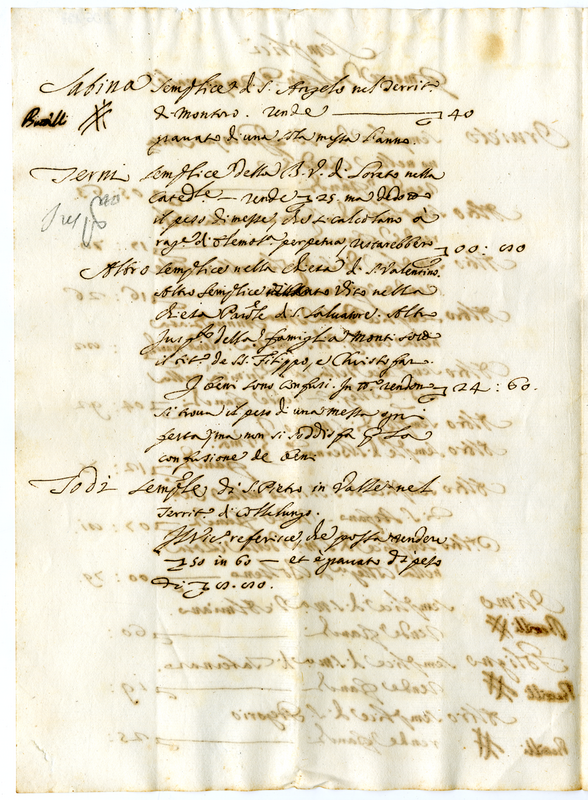 Sabina Semplice di S. Angelo nel Territ.o
Busilli di Montoro. rende 40
gravato di una sola messa l'anno.
Terni Semplice della B. V. di Loreto nella
Catedle. rende 25. ma dedotto
il peso di messe, che si calcolano a
rag.e di elemos.a perpetua, restarebbero 00 : 50
Altro Semplice nella Chiesa di S. Valentino.
Altro Semplice Vito nella
Chiesa Par.le di S. Salvatore. Altro
Jusp.to della famiglia Monti sotto
il tit.o de SS. Filippo, e Christofaro
I beni sono confusi. In tt.o rendono 24 : 60.
Si trova il peso di una messa ogni
festa, ma non si soddisfa p la
confusione de beni
Todi Semple di S. Pietro in Valle nel
Territ.o di Collelungo.
Il Vic.o referisce, che possa rendere
50 in 60 — et è gravato di peso
di 8. 50.